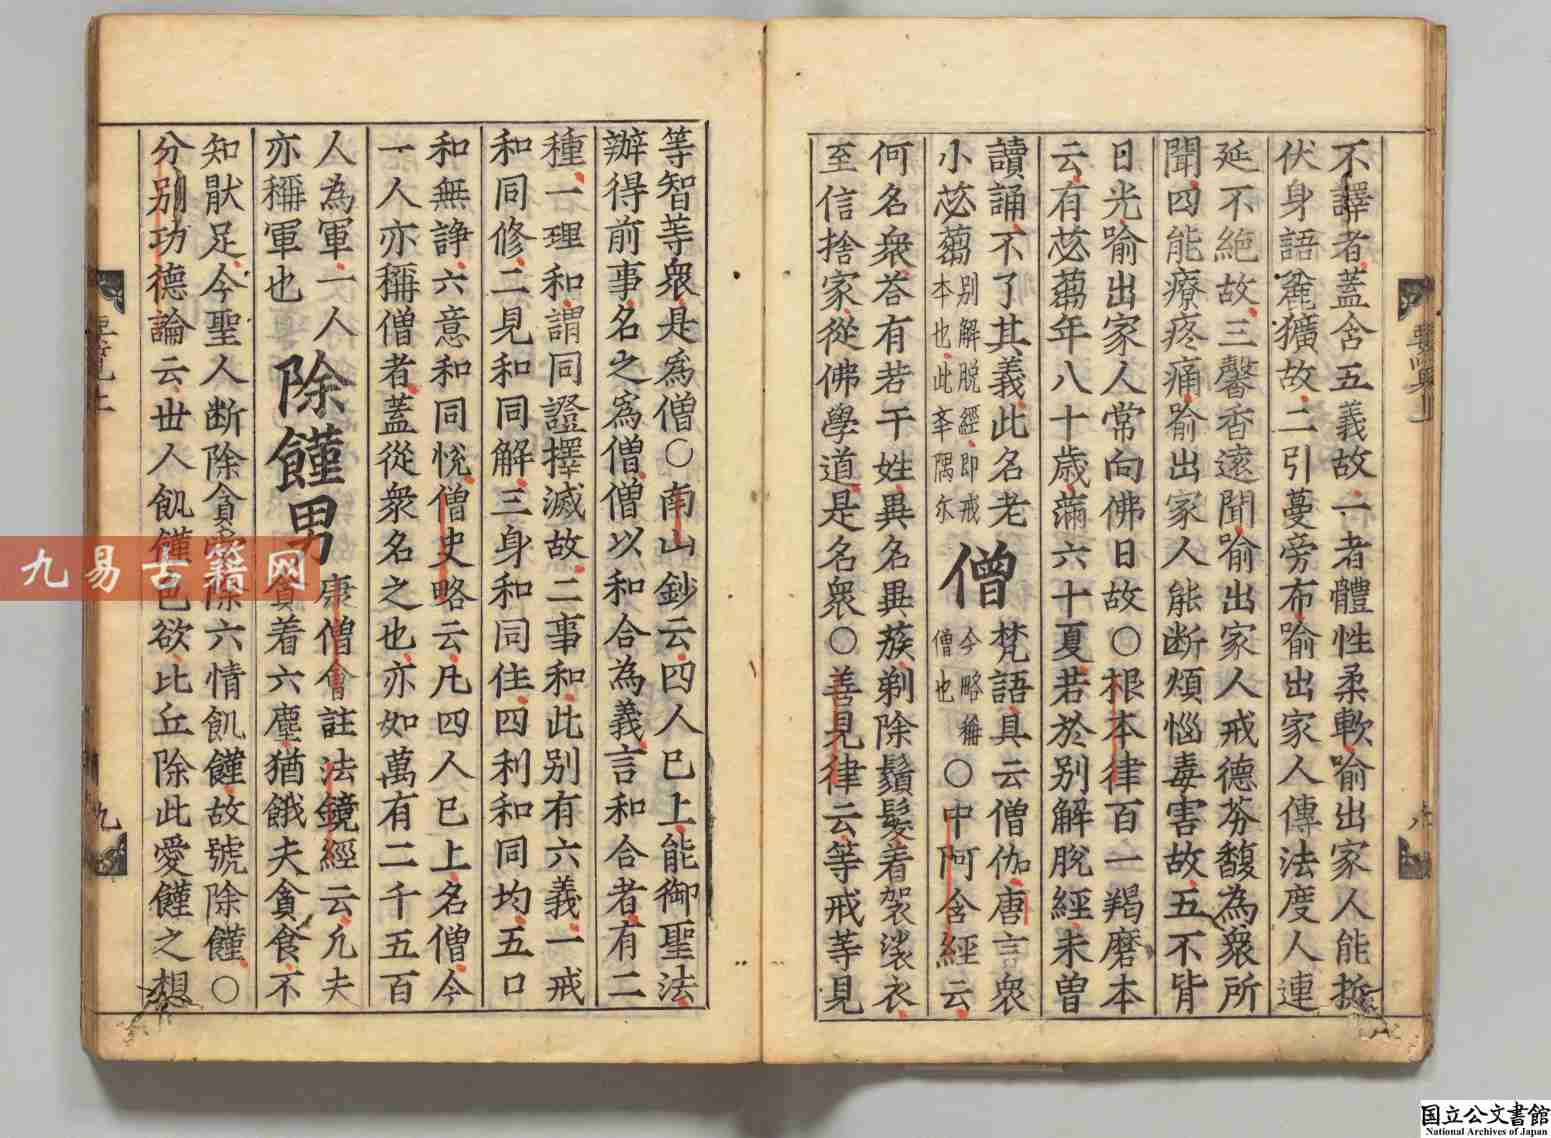 不譯者蓋含五義故一者體性柔軟喻出家人能折
伏身語麁獷故二引蔓旁布喻出家人傳法度人連
延不絶故三馨香遠聞喻出家人戒德芬馥為衆所
聞四能療疼痛喻出家人能断煩惱毒害故五不背
日光喻出家人常向佛日故〇根本律百一羯磨本
云有苾蒭年八十歳滿六十夏若於别解脫經未曽
讀誦不了其義此名老
小苾蒭
别解脫經即戒
本也此奉隅尓
僧
梵語具云僧伽唐言衆
今略稱
僧也
〇中阿含經云
何名衆荅有若干姓異名異蔟剃除鬚髮着袈裟衣
至信捨家從佛學道是名衆〇善見律云等戒等見
等智等衆是為僧〇南山鈔云四人已上能御聖法
辦得前事名之為僧僧以和合為義言和合者有二
種一理和謂同證擇滅故二事和此别有六義一戒
和同修二見和同解三身和同住四利和同均五口
和無諍六意和同悅僧史略云凡四人已上名僧今
一人亦稱僧者蓋從衆名之也亦如萬有二千五百
人為軍一人
亦稱軍也
除饉男
康僧會註法鏡經云凡夫
貪着六塵猶餓夫貪食不
知猒足今聖人断除貪
除六情飢饉故號除饉〇
分别功德論云世人飢饉
色欲比丘除此愛饉之想
要覽上
九
九易古籍网
国立公文書館
National Archives of Japan